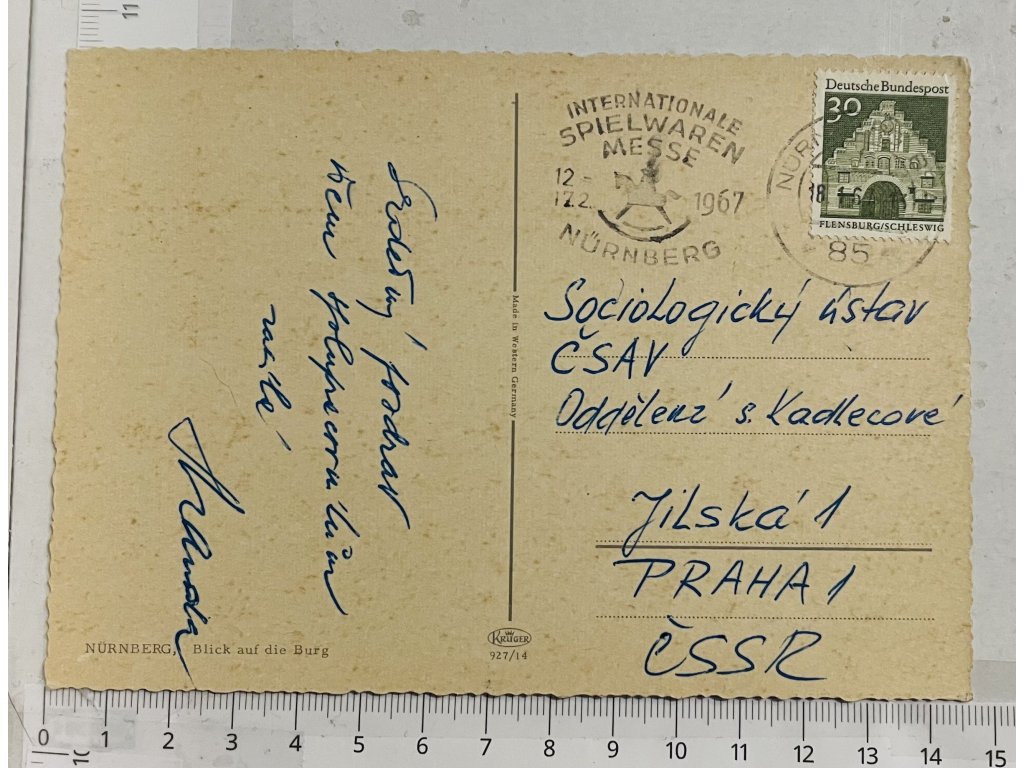 Srdečný pozdrav
všem spolupracovníkům
zasílá
INTERNATIONALE
SPIELWAREN
MESSE
12.-
17.2. 1967
NÜRNBERG
Deutsche Bundespost
30
FLENSBURG/SCHLESWIG
85
Sociologický ústav
ČSAV
Oddělení s. Kadlecové
Jilská 1
PRAHA 1
ČSSR
Made in Western Germany
KRÜGER
927/14
NÜRNBERG, Blick auf die Burg
11
0 1 2 3 4 5 6 7 8 9 10 11 12 13 14 15
10